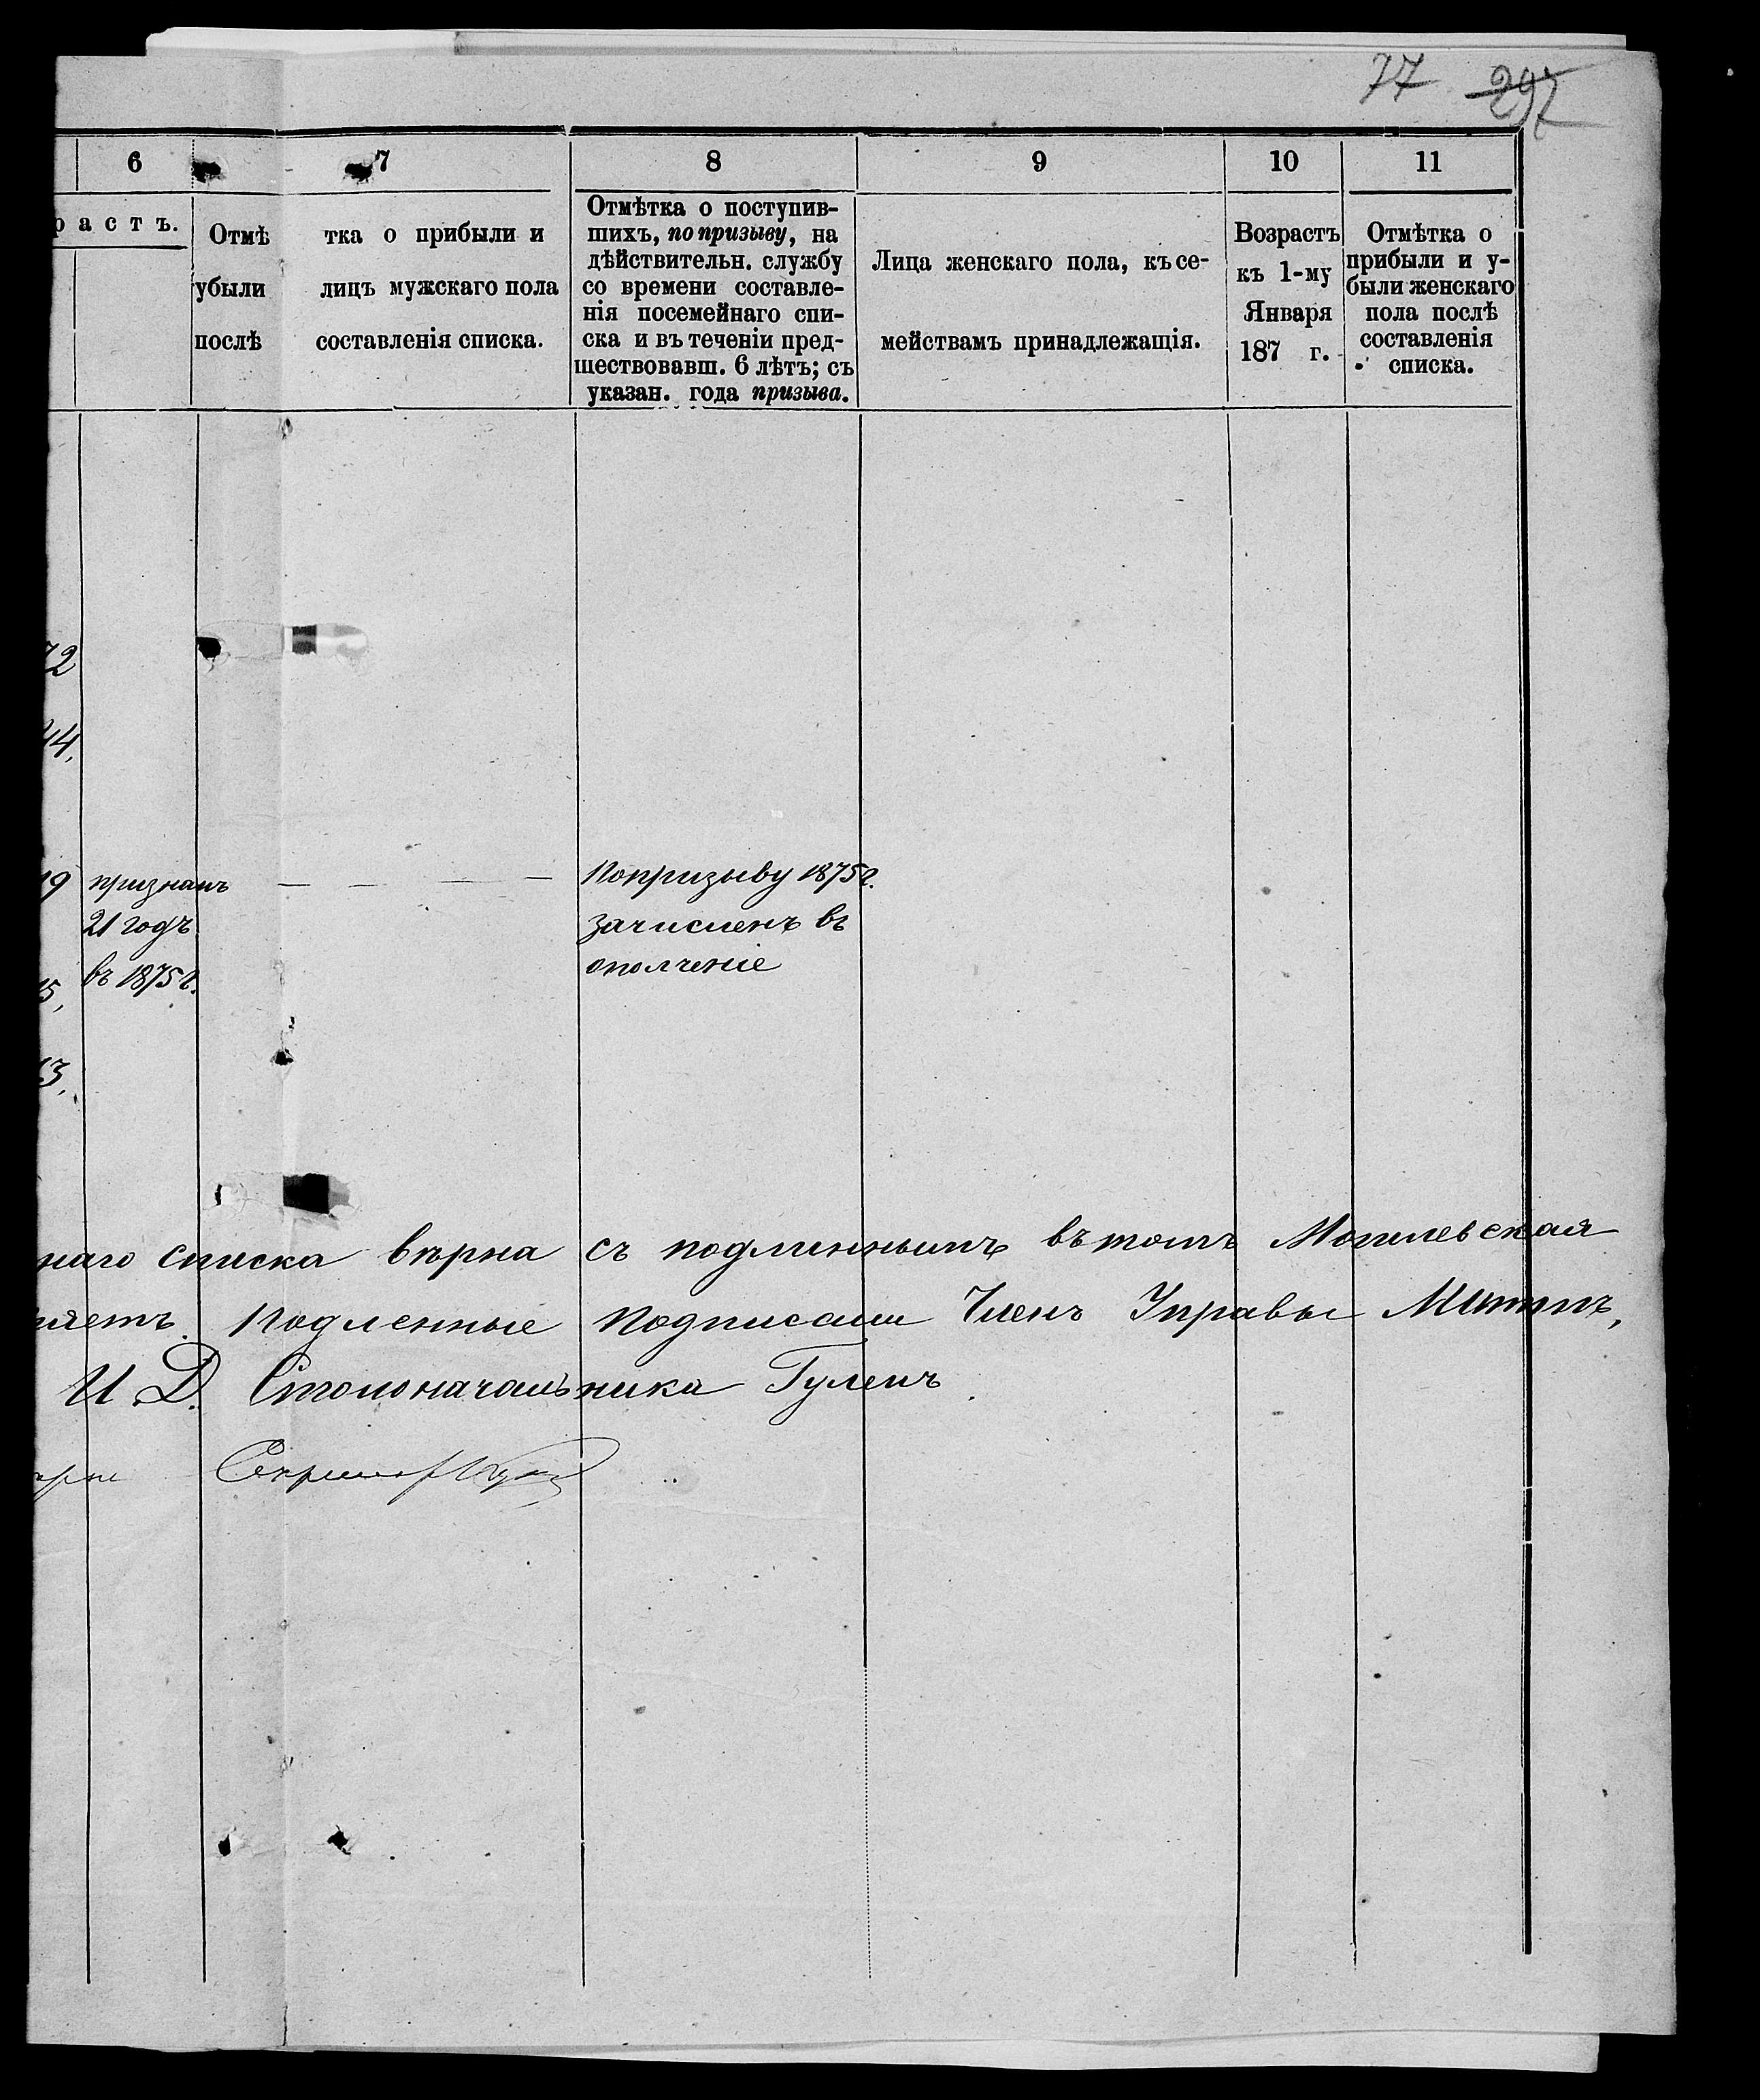 77 297
6 7 8 9 10 11
растъ.
Отмѣтка о прибыли и
убыли лицъ мужскаго пола
послѣ составленія списка.
Отмѣтка о поступив-
шихъ, по призыву, на
дѣйствительн. службу
со времени составле-
нія посемейнаго спи-
ска и въ теченіи пред-
шествовавш. 6 лѣтъ; съ
указан. года призыва.
Лица женскаго пола, къ се-
мействамъ принадлежащія.
Возрастъ
къ 1-му
Января
187 г.
Отмѣтка о
прибыли и у-
были женскаго
пола послѣ
составленія
списка.
72
44.
19 признанъ — — — — По призыву 1875 г.
21 годъ зачисленъ въ
въ 1875 г. ополченіе
15,
13,
наго списка вѣрна съ подлиннымъ въ томъ Могилевская
яетъ. Подленные подписали Членъ Управы
И. Д. Столоначальника